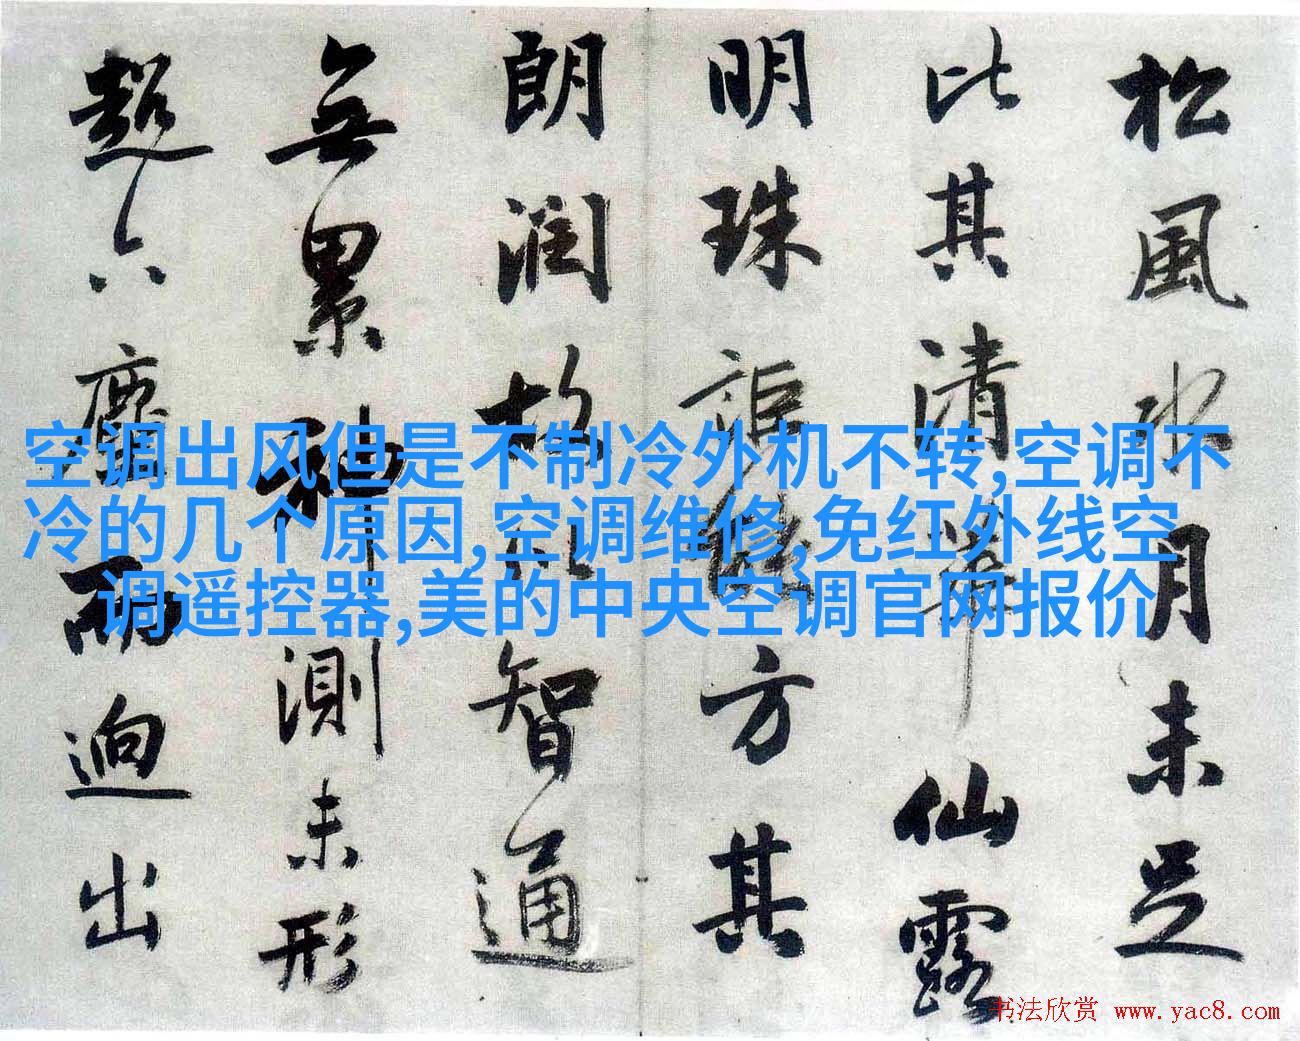 松風水月未足
比其清華仙露
明珠詎能方其
朗潤故以智通
無累神測未形
超六塵而迥出
空调出风但是不制冷外机不转,空调不
冷的几个原因,空调维修,免红外线空
调遥控器,美的中央空调官网报价
书法欣赏 www.yac8.com